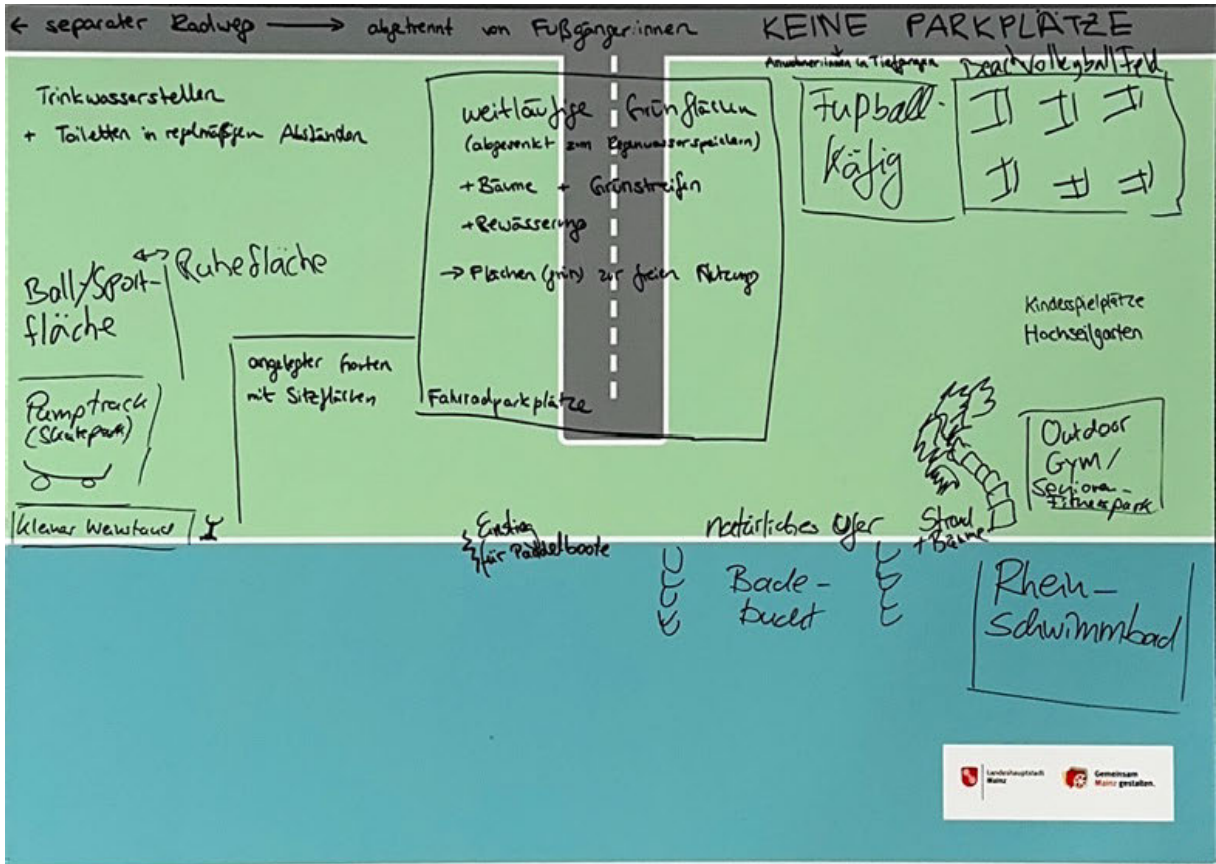 ← separater Radweg → abgetrennt von Fußgänger:innen
KEINE PARKPLÄTZE
Anwohner:innen in Tiefgaragen
Beachvolleyballfeld
Trinkwasserstellen
+ Toiletten in regelmäßigen Abständen
weitläufige Grünflächen
(abgesenkt zum Regenwasserspeichern)
+ Bäume + Grünstreifen
+ Bewässerung
→ Flächen (grün) zur freien Nutzung
Fahrradparkplätze
Fußball-
Käfig
Ball/Sport-
fläche
↔ Ruhefläche
Pumptrack
(Skatepark)
angelegter Garten
mit Sitzflächen
Kleiner Weinstand
Kinderspielplätze
Hochseilgarten
Outdoor
Gym/
Senioren-
Fitnesspark
Einstieg
für Paddelboote
natürliches Ufer
Strand
+ Bäume
Bade-
bucht
Rhein-
schwimmbad
Landeshauptstadt
Mainz
Gemeinsam
Mainz gestalten.